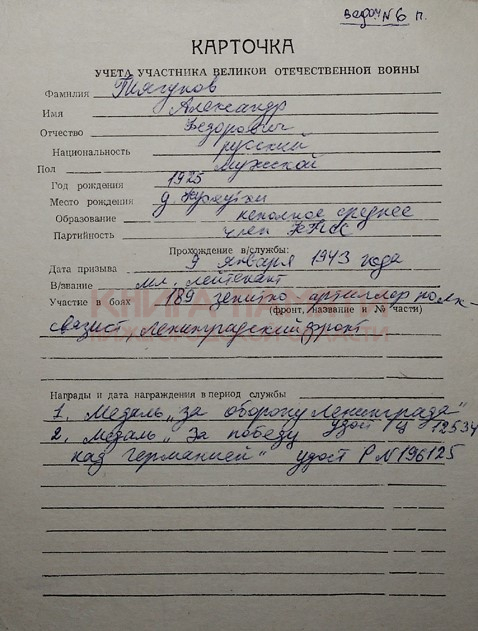 ведом. №6 п.
КАРТОЧКА
УЧЕТА УЧАСТНИКА ВЕЛИКОЙ ОТЕЧЕСТВЕННОЙ ВОЙНЫ
Фамилия Тягунов
Имя Александр
Отчество Федорович
Национальность русский
Пол мужской
Год рождения 1925
Место рождения д.
Образование неполное среднее
Партийность член КПСС
Прохождение в/службы:
Дата призыва 9 января 1943 года
В/звание мл. лейтенант
Участие в боях 189 зенитно артиллер полк -
(фронт, название и № части)
связист Ленинградский фронт
КНИГА ПАМЯТИ
НИЖЕГОРОДСКОЙ ОБЛАСТИ
Награды и дата награждения в период службы
1. Медаль „за оборону Ленинграда"
2. Медаль „За победу удост Ц 12534
над германией" удост Р N196125